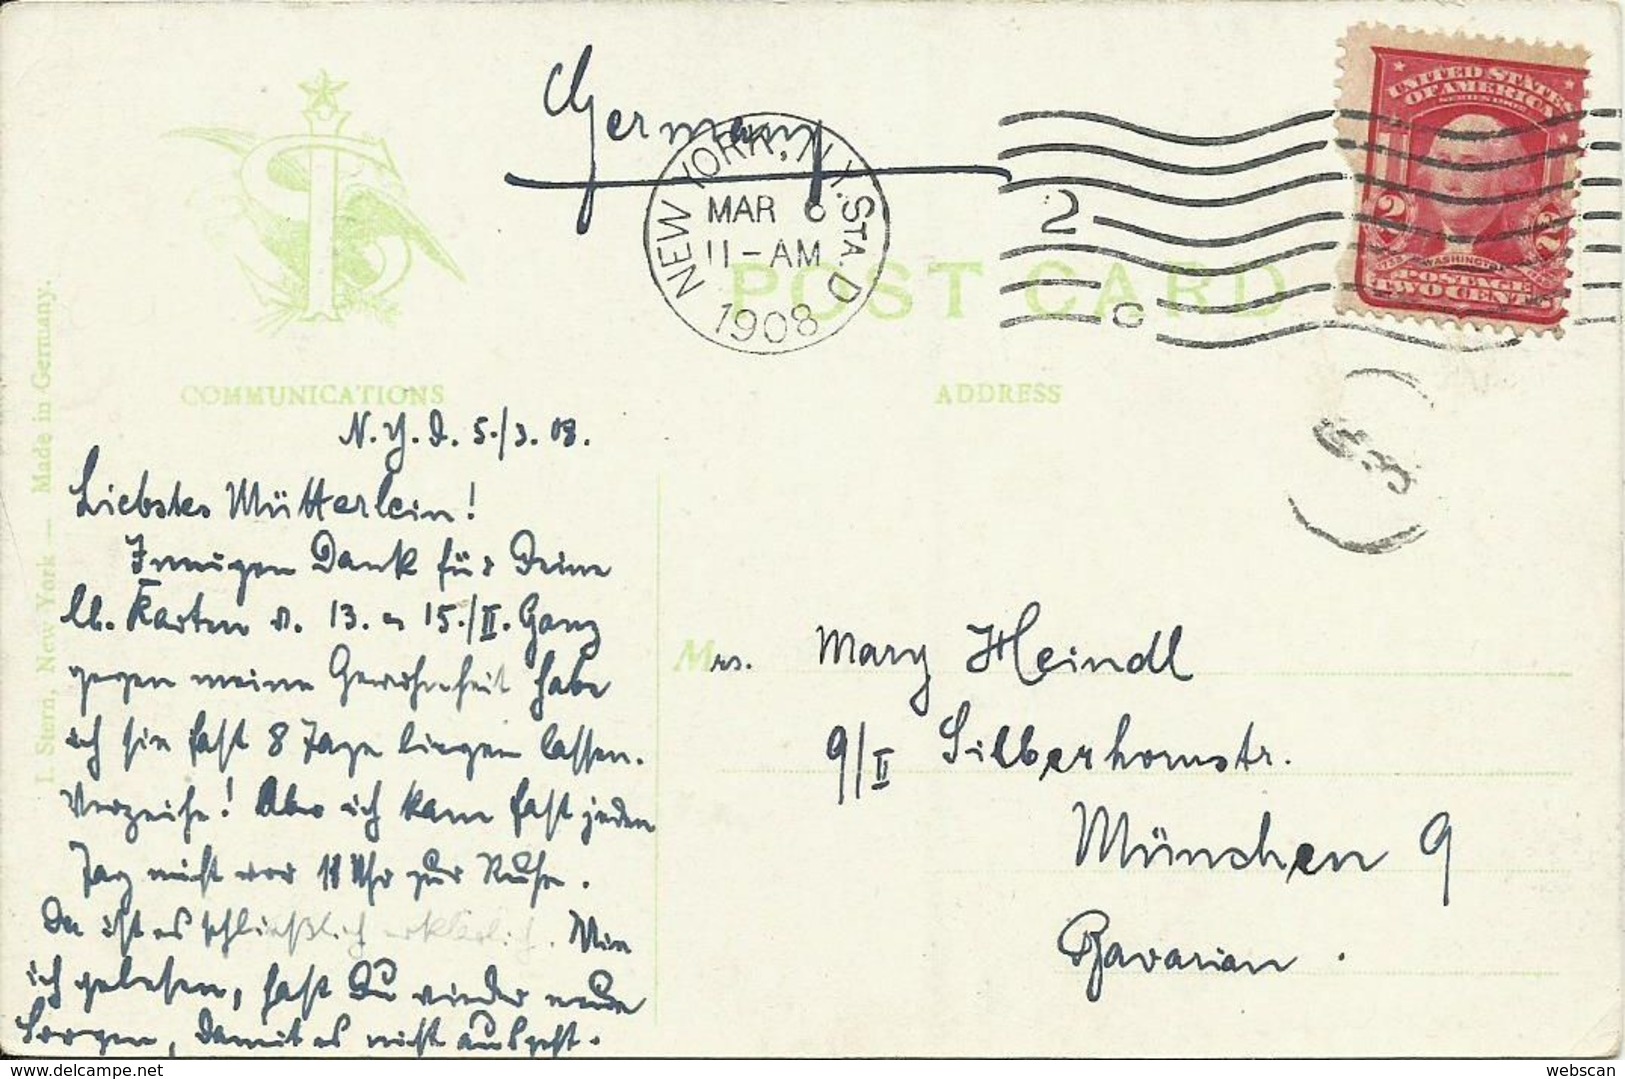 Germany
NEW YORK, N.Y. STA. D
MAR 6
11-AM
1908
2
C
UNITED STATES
OF AMERICA
2
2
WASHINGTON
POSTAGE
TWO CENTS
POST CARD
COMMUNICATIONS
ADDRESS
I. Stern, New York — Made in Germany.
N. Y. d. 5./3. 08.
Liebstes Mütterlein!
Innigen Dank für Deine
lb. Karten v. 13. u 15./II. Ganz
gegen meine Gewohnheit habe
ich sie fast 8 Tage liegen lassen.
Verzeihe! Aber ich kam fast jeden
Tag nicht vor 11 Uhr zur Ruhe.
Da ist es schließlich erklärlich. Wie
ich gelesen, hast Du wieder neue
Sorgen, damit es nicht ausgeht.
Mrs. Mary Heindl
9/II Silberhornstr.
München 9
Bavarian.
webscan
webscan